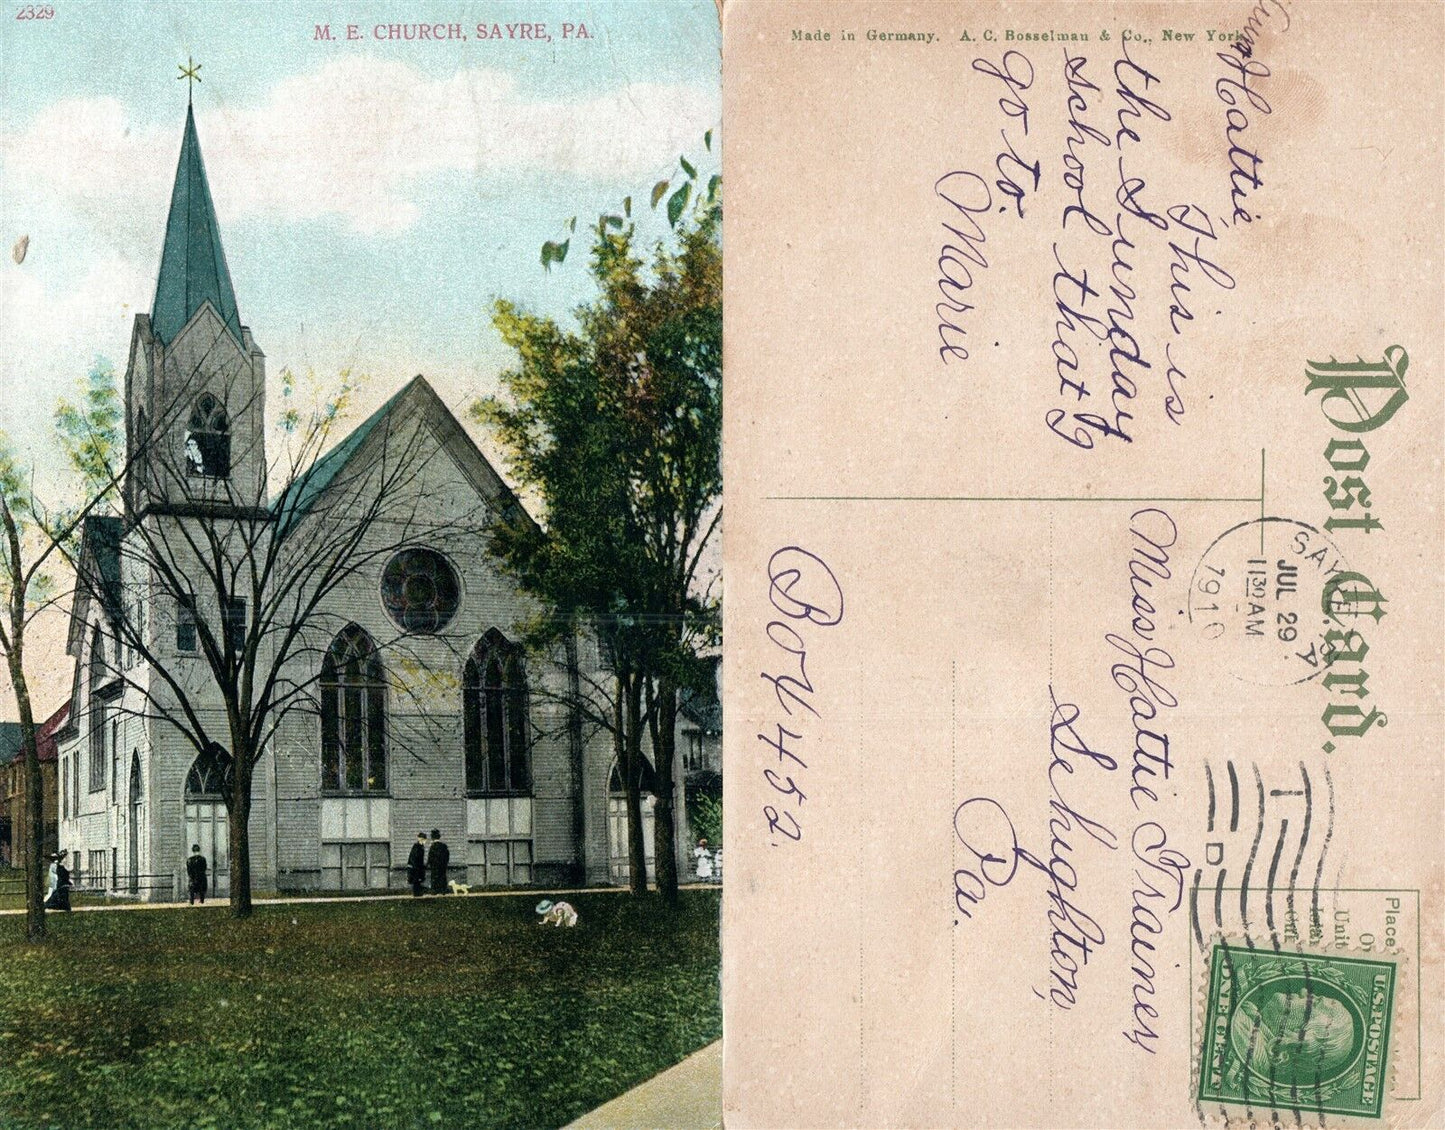 2329
M. E. CHURCH, SAYRE, PA.
Made in Germany. A. C. Bosselman & Co., New York
Post Card.
Hattie,
This is
the Sunday
school that I
go to.
Marie
SAYRE
JUL 29
1130 AM
1910
Miss Hattie Trainer,
Lehighton,
Pa.
Box 452.
Place
U.S. POSTAGE
ONE CENT